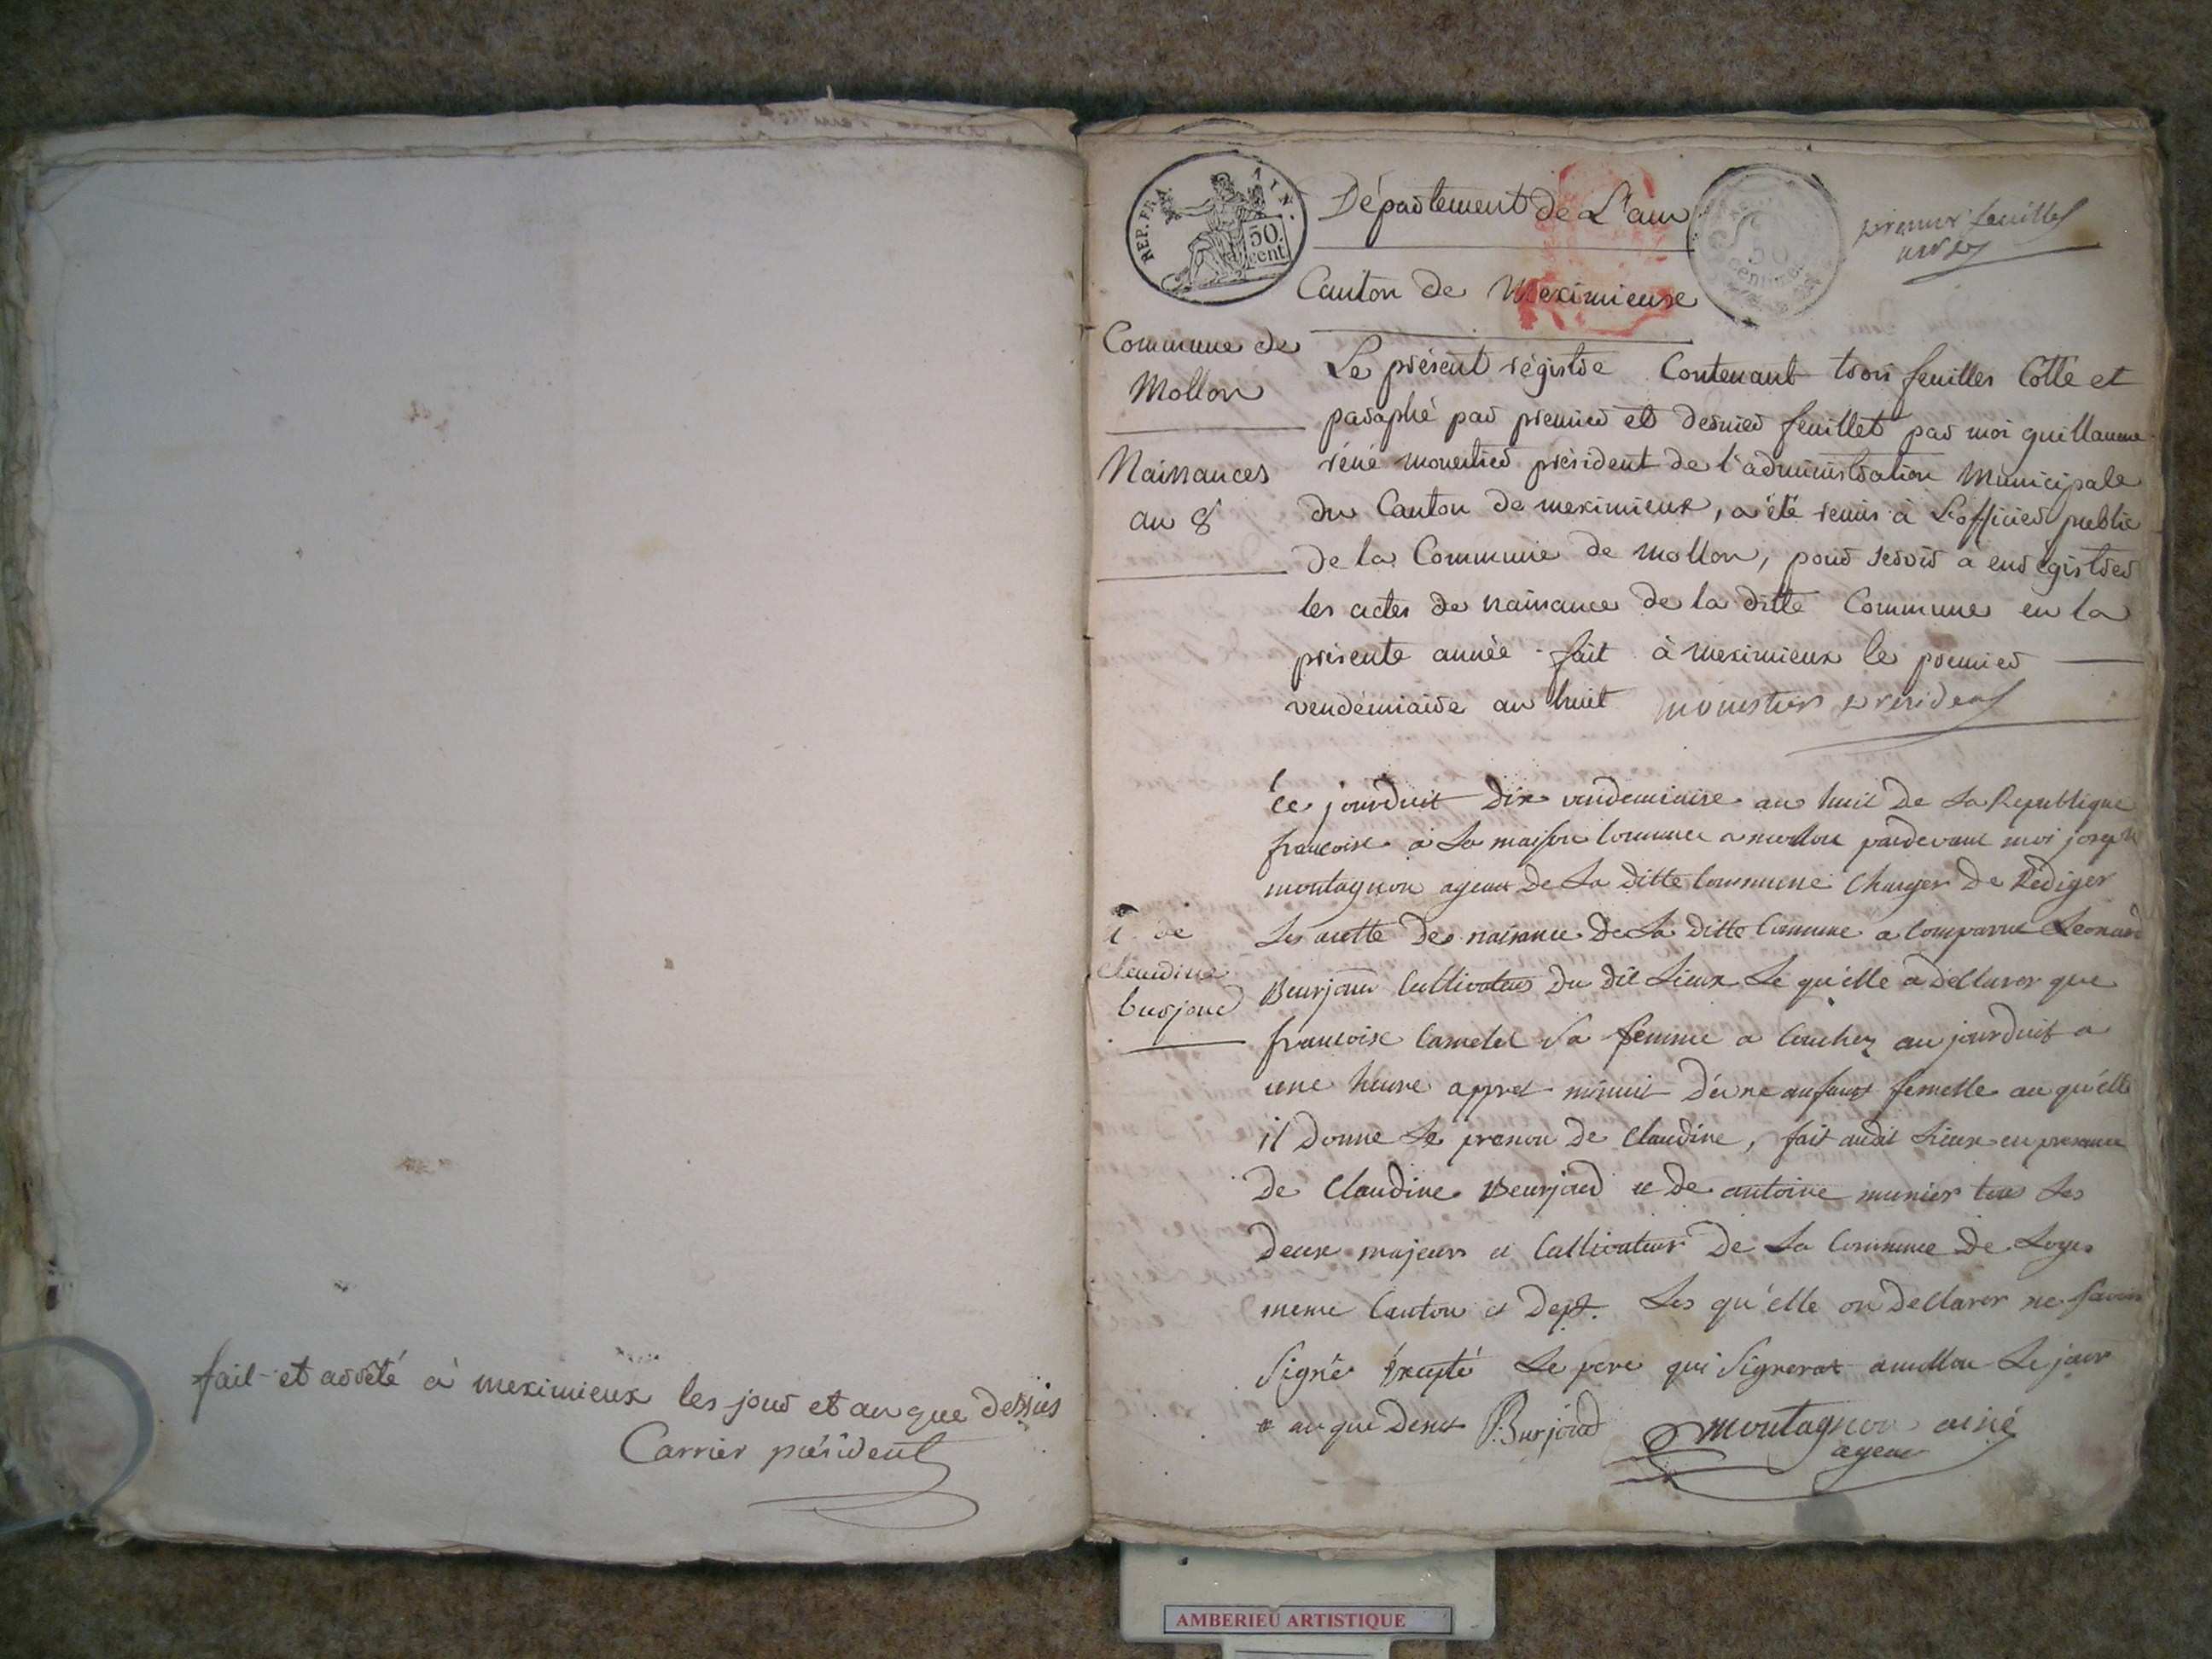 fait et arrêté à meximieux les jour et an que dessus
Carrier président
REP. FRA. AIN.
50.
cent.
Département de L'ain
premier feuillet
Canton de Meximieux
Commune de
Mollon
Naissances
an 8
Le présent régistre Contenant trois feuilles Cotté et
paraphé par premier et dernier feuillet par moi guillaume
réné monestier président de l'administration Municipale
du Canton de meximieux, a été remis à L'officier public
de la Commune de mollon, pour servir à enrégistrer
les actes de naissance de la ditte Commune en la
présente année fait à meximieux le premier
vendémiaire an huit monestier president
Ce jourduit dix vendemiaire an huit de La Republique
francoise a La maison Commune a mollon pardevant moi joseph
montagnon agent De La ditte Commune Charger De Rediger
Les acette De naisance De La ditte Commune a Comparue Leonard
1 de
Claudine
burjoud
Beurjoud Cultivateur Du dit Lieux Le qu'elle a Dellarer que
francoise Camelet Sa femme a Couchez au jourduit a
une heure appret minuit D'une anfant femelle au qu'elle
il Donne Le prenon De Claudine, fait audit Lieux en presance
De Claudine Beurjoud et De antoine munier tou Les
Deux majeurs et Cultivateur De La Commune De Loyes
meme Canton et Dept. Les qu'elle on Dellarer ne Savoir
Signé Excepté Le pere qui Signerat a mollon Le jour
et an que Desut Burjoud montagnon ainé
agent
AMBERIEU ARTISTIQUE